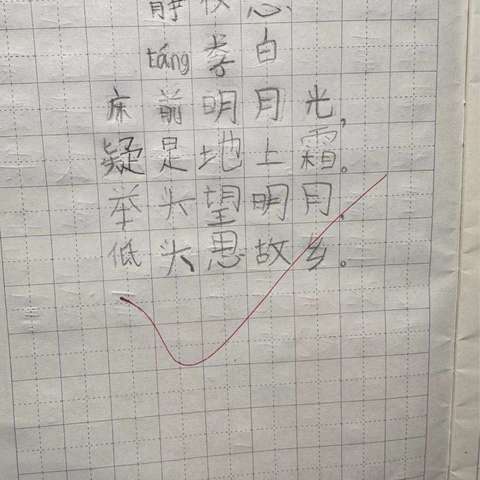 静夜思
táng 李白
床前明月光，
疑是地上霜。
举头望明月，
低头思故乡。